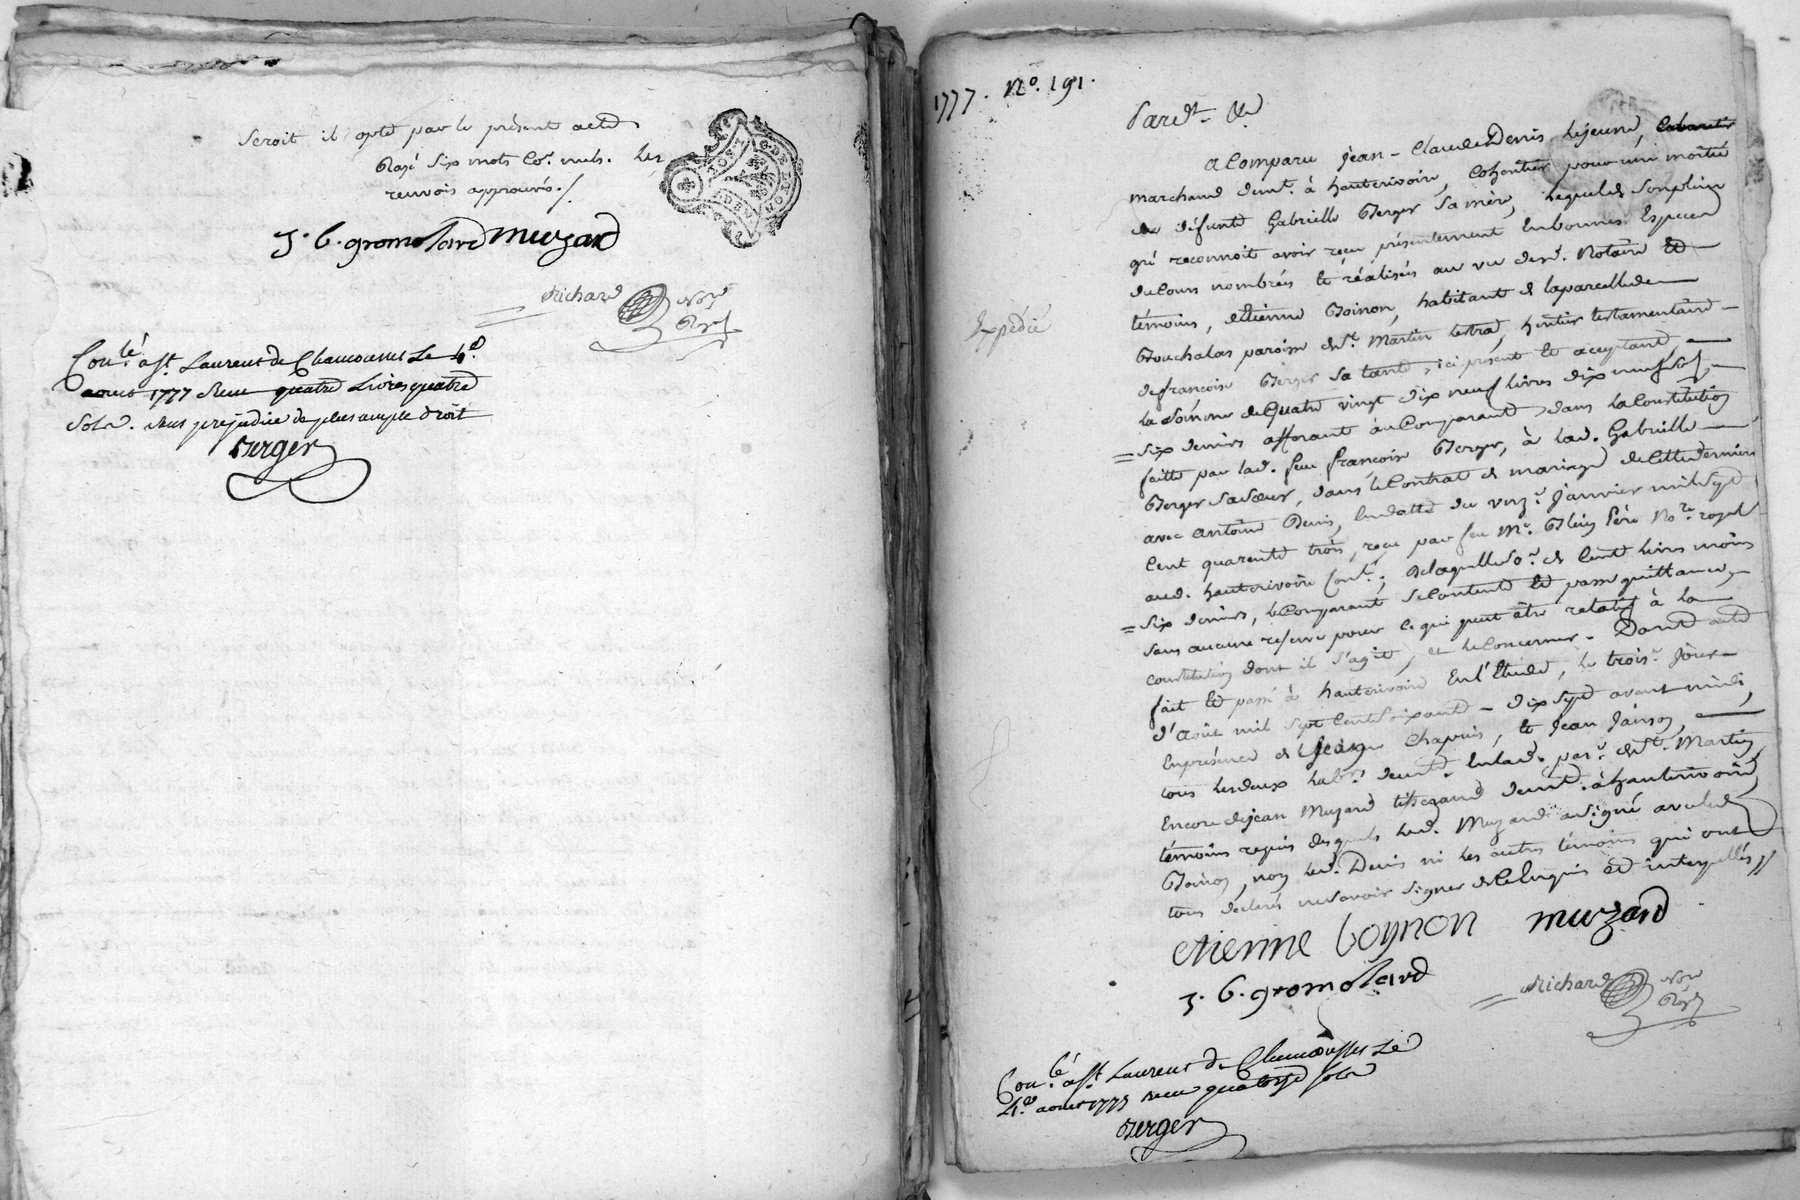 seroit il opté par le présent acte.
Rayé six mots co. nuls. Les
renvois approuvés./.
J. B. gromolard muzard
Richard No.re
Roy.l
Con.lé à St. Laurent de Chamousset le 4.e
aoust 1777 Reçu quatre Livres quatre
Sols. Sans préjudice de plus ample droit
Berger
1777. N.o 191.
Pard.t &c
Expédié
a Comparu Jean-Claude Denis, le jeune, Cabaretier
marchand demt. à hauterivoire, Cohéritier pour une moitié
de défunte Gabrielle Berger sa mère, lequel de son plein
gré reconnoit avoir reçu présentement en bonnes Espèces
de Cours nombrés et réalisés au vu du Notaire et
témoins, d'Etienne Boinon, habitant de la parcelle de
Bouchalas paroisse de St. Martin lestra, héritier testamentaire
de françoise Berger sa tante, ici présent et acceptant
la Somme de Quatre vingt dix neuf livres dix neuf sols,
six deniers afférant au Comparant dans la Constitution
faitte par lad. feue françoise Berger, à lad. Gabrielle
Berger sa sœur, dans le Contrat de mariage de cette dernière
avec antoine Denis, en datte du Janvier mil sept
Cent quarente trois, reçu par feu Me. père No.re royal
aud. hauterivoire Cont.; de laquelle So.e de Cent livres moins
six deniers, le Comparant se Contente et passe quittance,
sans aucune réserve pour ce qui peut être relatif à la
constitution dont il s'agit, et le Concerner. Dont acte
fait et passé à hauterivoire En l'Etude, le trois.e Jour
d'Août mil sept Cent soixante-dix sept avant midi,
En présence de Chapuis, et Jean Janson,
tous les deux hab.s demt. en lad. par. de St. Martin,
Encore de jean Muzard tisserand demt. à hauterivoire,
témoins requis desquels led. Muzard a signé avec led.
Boinon, non led. Denis ni les autres témoins qui ont
tous déclaré ne savoir signer de ce Enquis et interpellés //
etienne boynon muzard
J. B. gromolard
Richard No.re
Roy.l
Con.lé à St. Laurent de Chamousset Le
4.e aoust 1777 reçu quatorze sols
Berger